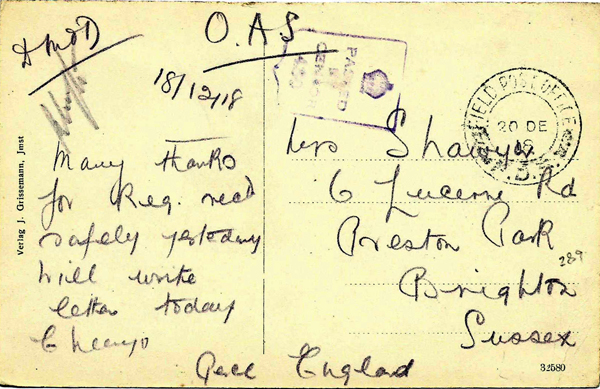 O.A.S
18/12/18
PASSED
CENSOR
FIELD POST OFFICE
20 DE
18
Many thanks
for Reg. recd
safely yesterday
will write
letter today
Cheeryo
Mrs Shaw
6 Lucerne Rd
Preston Park
Brighton
Sussex
England
289
32580
Verlag J. Grissemann, Jmst